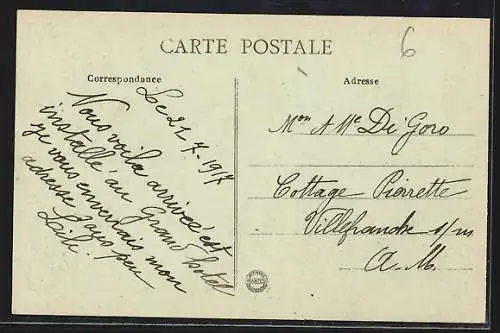 CARTE POSTALE
6
Correspondance
Adresse
Le 21-7-1917
Nous voilà arrivée est
installé au Grand hotel
je vous enverrais mon
adresse d'apis peu
Lili.
Mon A Me Di Goro
Cottage Pierrette
Villefranche s/m
A.M.